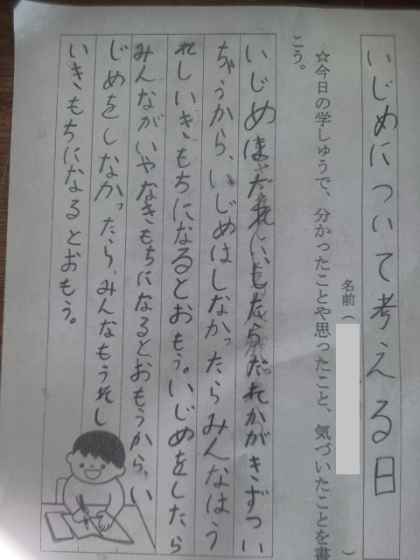 いじめについて考える日
名前（　　）
☆今日の学しゅうで、分かったことや思ったこと、気づいたことを書
こう。
いじめは、だれかがきずつい
ちゃうから、いじめはしなかったらみんなはう
れしいきもちになるとおもう。いじめをしたら
みんながいやなきもちになるとおもうから、い
じめをしなかったら、みんなもうれし
いきもちになるとおもう。